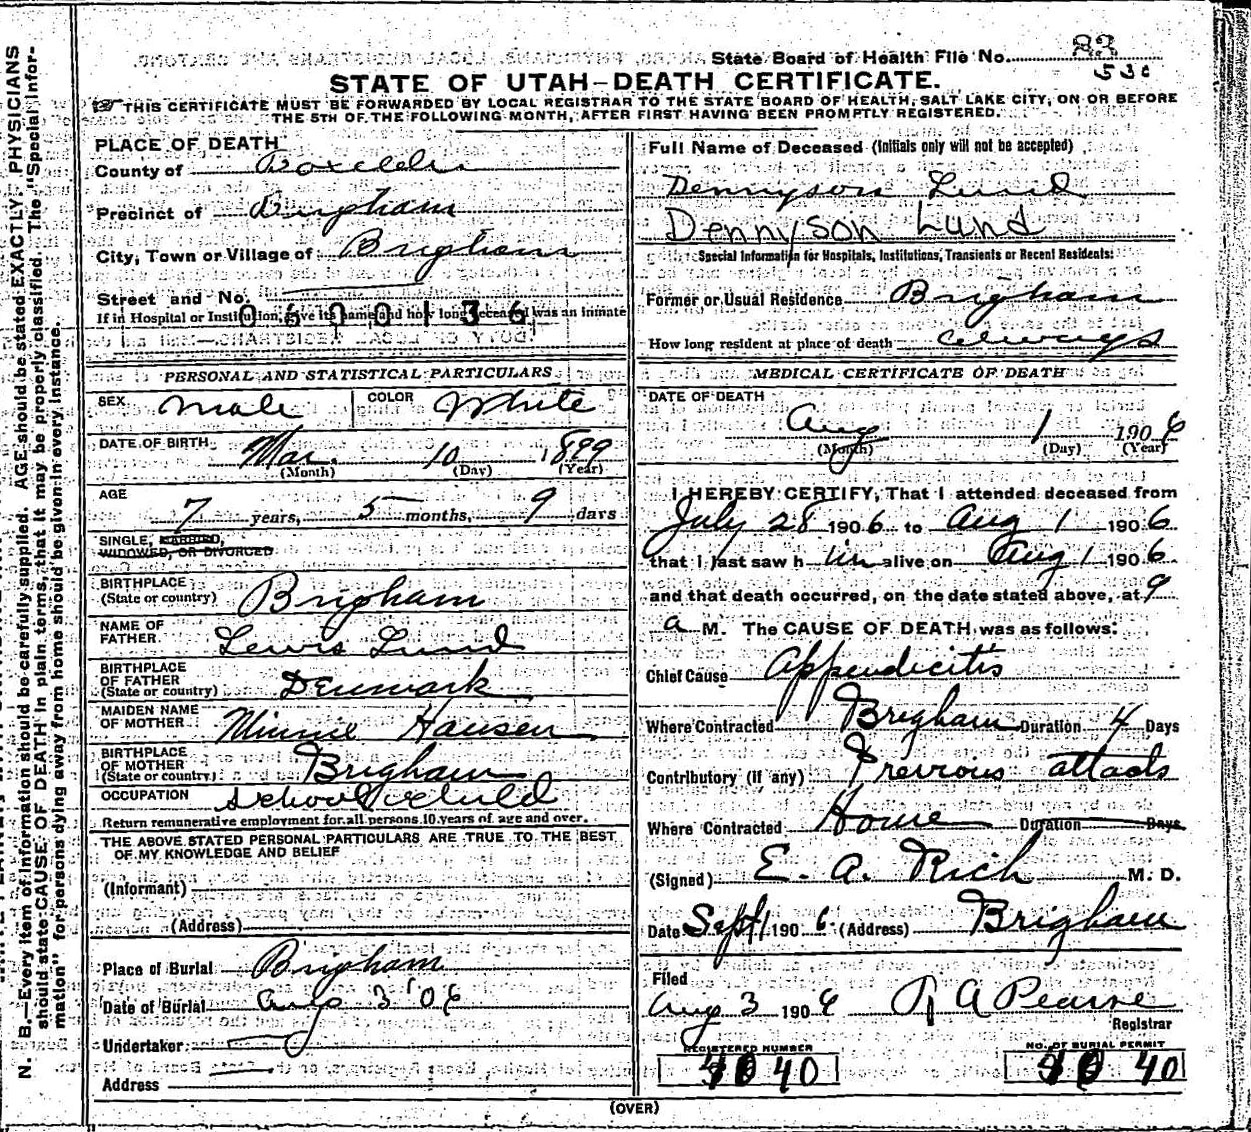 State Board of Health File No. 82
530
STATE OF UTAH—DEATH CERTIFICATE.
THIS CERTIFICATE MUST BE FORWARDED BY LOCAL REGISTRAR TO THE STATE BOARD OF HEALTH, SALT LAKE CITY, ON OR BEFORE
THE 5TH OF THE FOLLOWING MONTH, AFTER FIRST HAVING BEEN PROMPTLY REGISTERED.
PLACE OF DEATH
County of Boxelder
Precinct of Brigham
City, Town or Village of Brigham
Street and No.
If in Hospital or Institution, give its name and how long deceased was an inmate
0600136
PERSONAL AND STATISTICAL PARTICULARS
SEX Male COLOR White
DATE OF BIRTH Mar. 10 1899
(Month) (Day) (Year)
AGE
7 years, 5 months, 9 days
SINGLE, MARRIED,
WIDOWED, OR DIVORCED
BIRTHPLACE
(State or country) Brigham
NAME OF
FATHER Lewis Lund
BIRTHPLACE
OF FATHER
(State or country) Denmark
MAIDEN NAME
OF MOTHER Minnie Hansen
BIRTHPLACE
OF MOTHER
(State or country) Brigham
OCCUPATION School Child
Return remunerative employment for all persons 10 years of age and over.
THE ABOVE STATED PERSONAL PARTICULARS ARE TRUE TO THE BEST
OF MY KNOWLEDGE AND BELIEF
(Informant)
(Address)
Place of Burial Brigham
Date of Burial Aug 3 '06
Undertaker
Address
Full Name of Deceased (Initials only will not be accepted)
Dennyson Lund
Dennyson Lund
Special Information for Hospitals, Institutions, Transients or Recent Residents:
Former or Usual Residence Brigham
How long resident at place of death always
MEDICAL CERTIFICATE OF DEATH
DATE OF DEATH
Aug 1 1906
(Month) (Day) (Year)
I HEREBY CERTIFY, That I attended deceased from
July 28 1906 to Aug 1 1906
that I last saw him alive on Aug 1 1906
and that death occurred, on the date stated above, at 9
a M. The CAUSE OF DEATH was as follows:
Chief Cause Appendicitis
Where Contracted Brigham Duration 4 Days
Contributory (if any) Previous attacks
Where Contracted Home Duration Days
(Signed) E. A. Rich M. D.
Date Sept 1 1906 (Address) Brigham
Filed
Aug 3 1906 R A Pearse
Registrar
REGISTERED NUMBER
40
NO. OF BURIAL PERMIT
40
(OVER)
N. B.—Every item of information should be carefully supplied. AGE should be stated EXACTLY. PHYSICIANS
should state CAUSE OF DEATH in plain terms, that it may be properly classified. The "Special Infor-
mation" for persons dying away from home should be given in every instance.